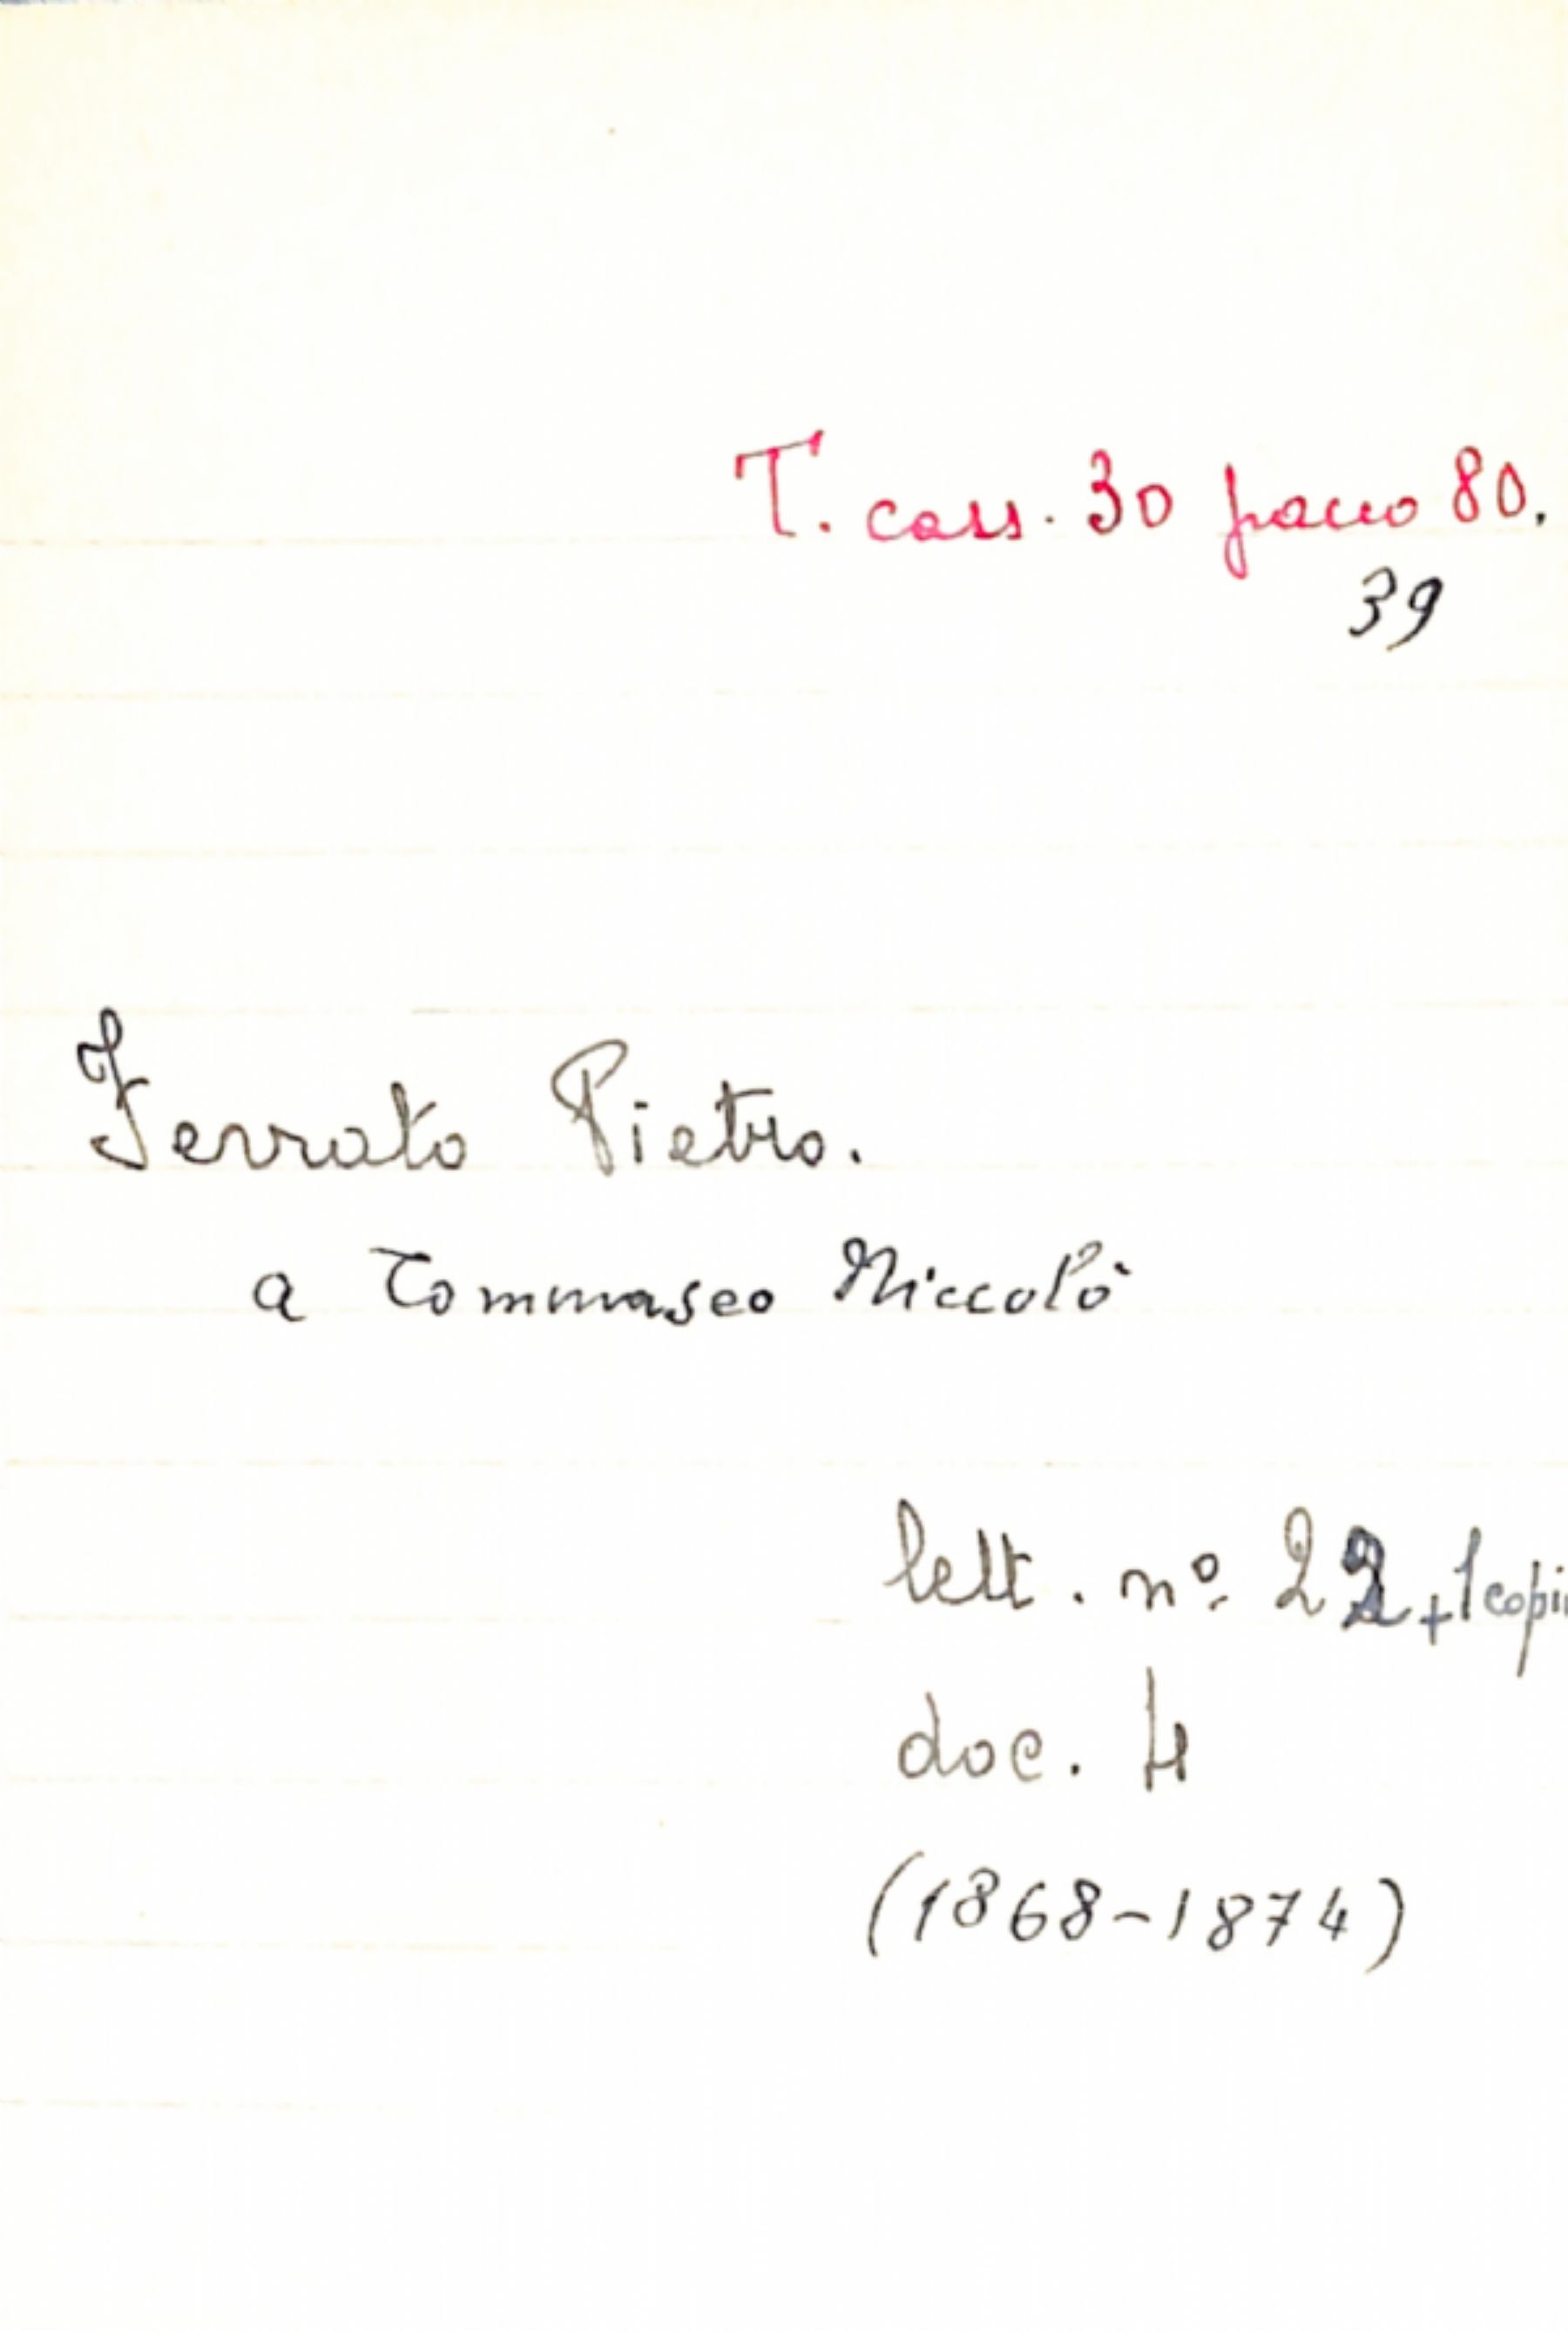 T. cass. 30 pacco 80.
39
Ferrato Pietro.
a Tommaseo Niccolò
lett. nº 22 + 1 copi
doc. 4
(1868-1874)